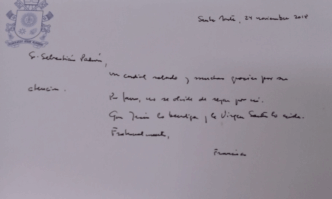 Santa Marta, 24 noviembre 2018
S. Sebastián
un cordial saludo y muchas gracias por su
atención.
Por favor, no se olvide de rezar por mí.
Que Jesús lo bendiga y la Virgen Santa lo cuide.
Fraternalmente,
Francisco